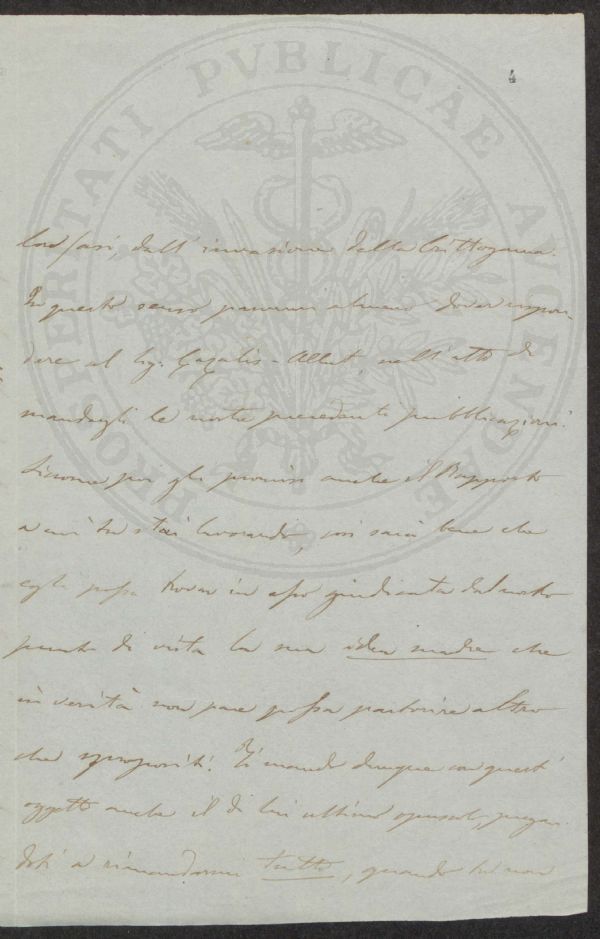 4
PROSPERITATI PVBLICAE AVGENDAE
casi, dall' invasione della Crittogama.
In questo senso parmi almeno dover rispon-
dere al Sig. Cazalis-Allut, nell'atto di
mandargli le nostre precedenti pubblicazioni.
Siccome poi gli promisi anche il Rapporto
a cui tu stai lavorando, così sarà bene che
egli possa trovar in esso giudicata dal nostro
punto di vista la sua idea madre che
in verità non pare possa partorire altro
che spropositi. Ti mando dunque con quest'
oggetto anche il di lui ultimo opuscolo, pregan-
doti a rimandarmi tutto, quando tu non